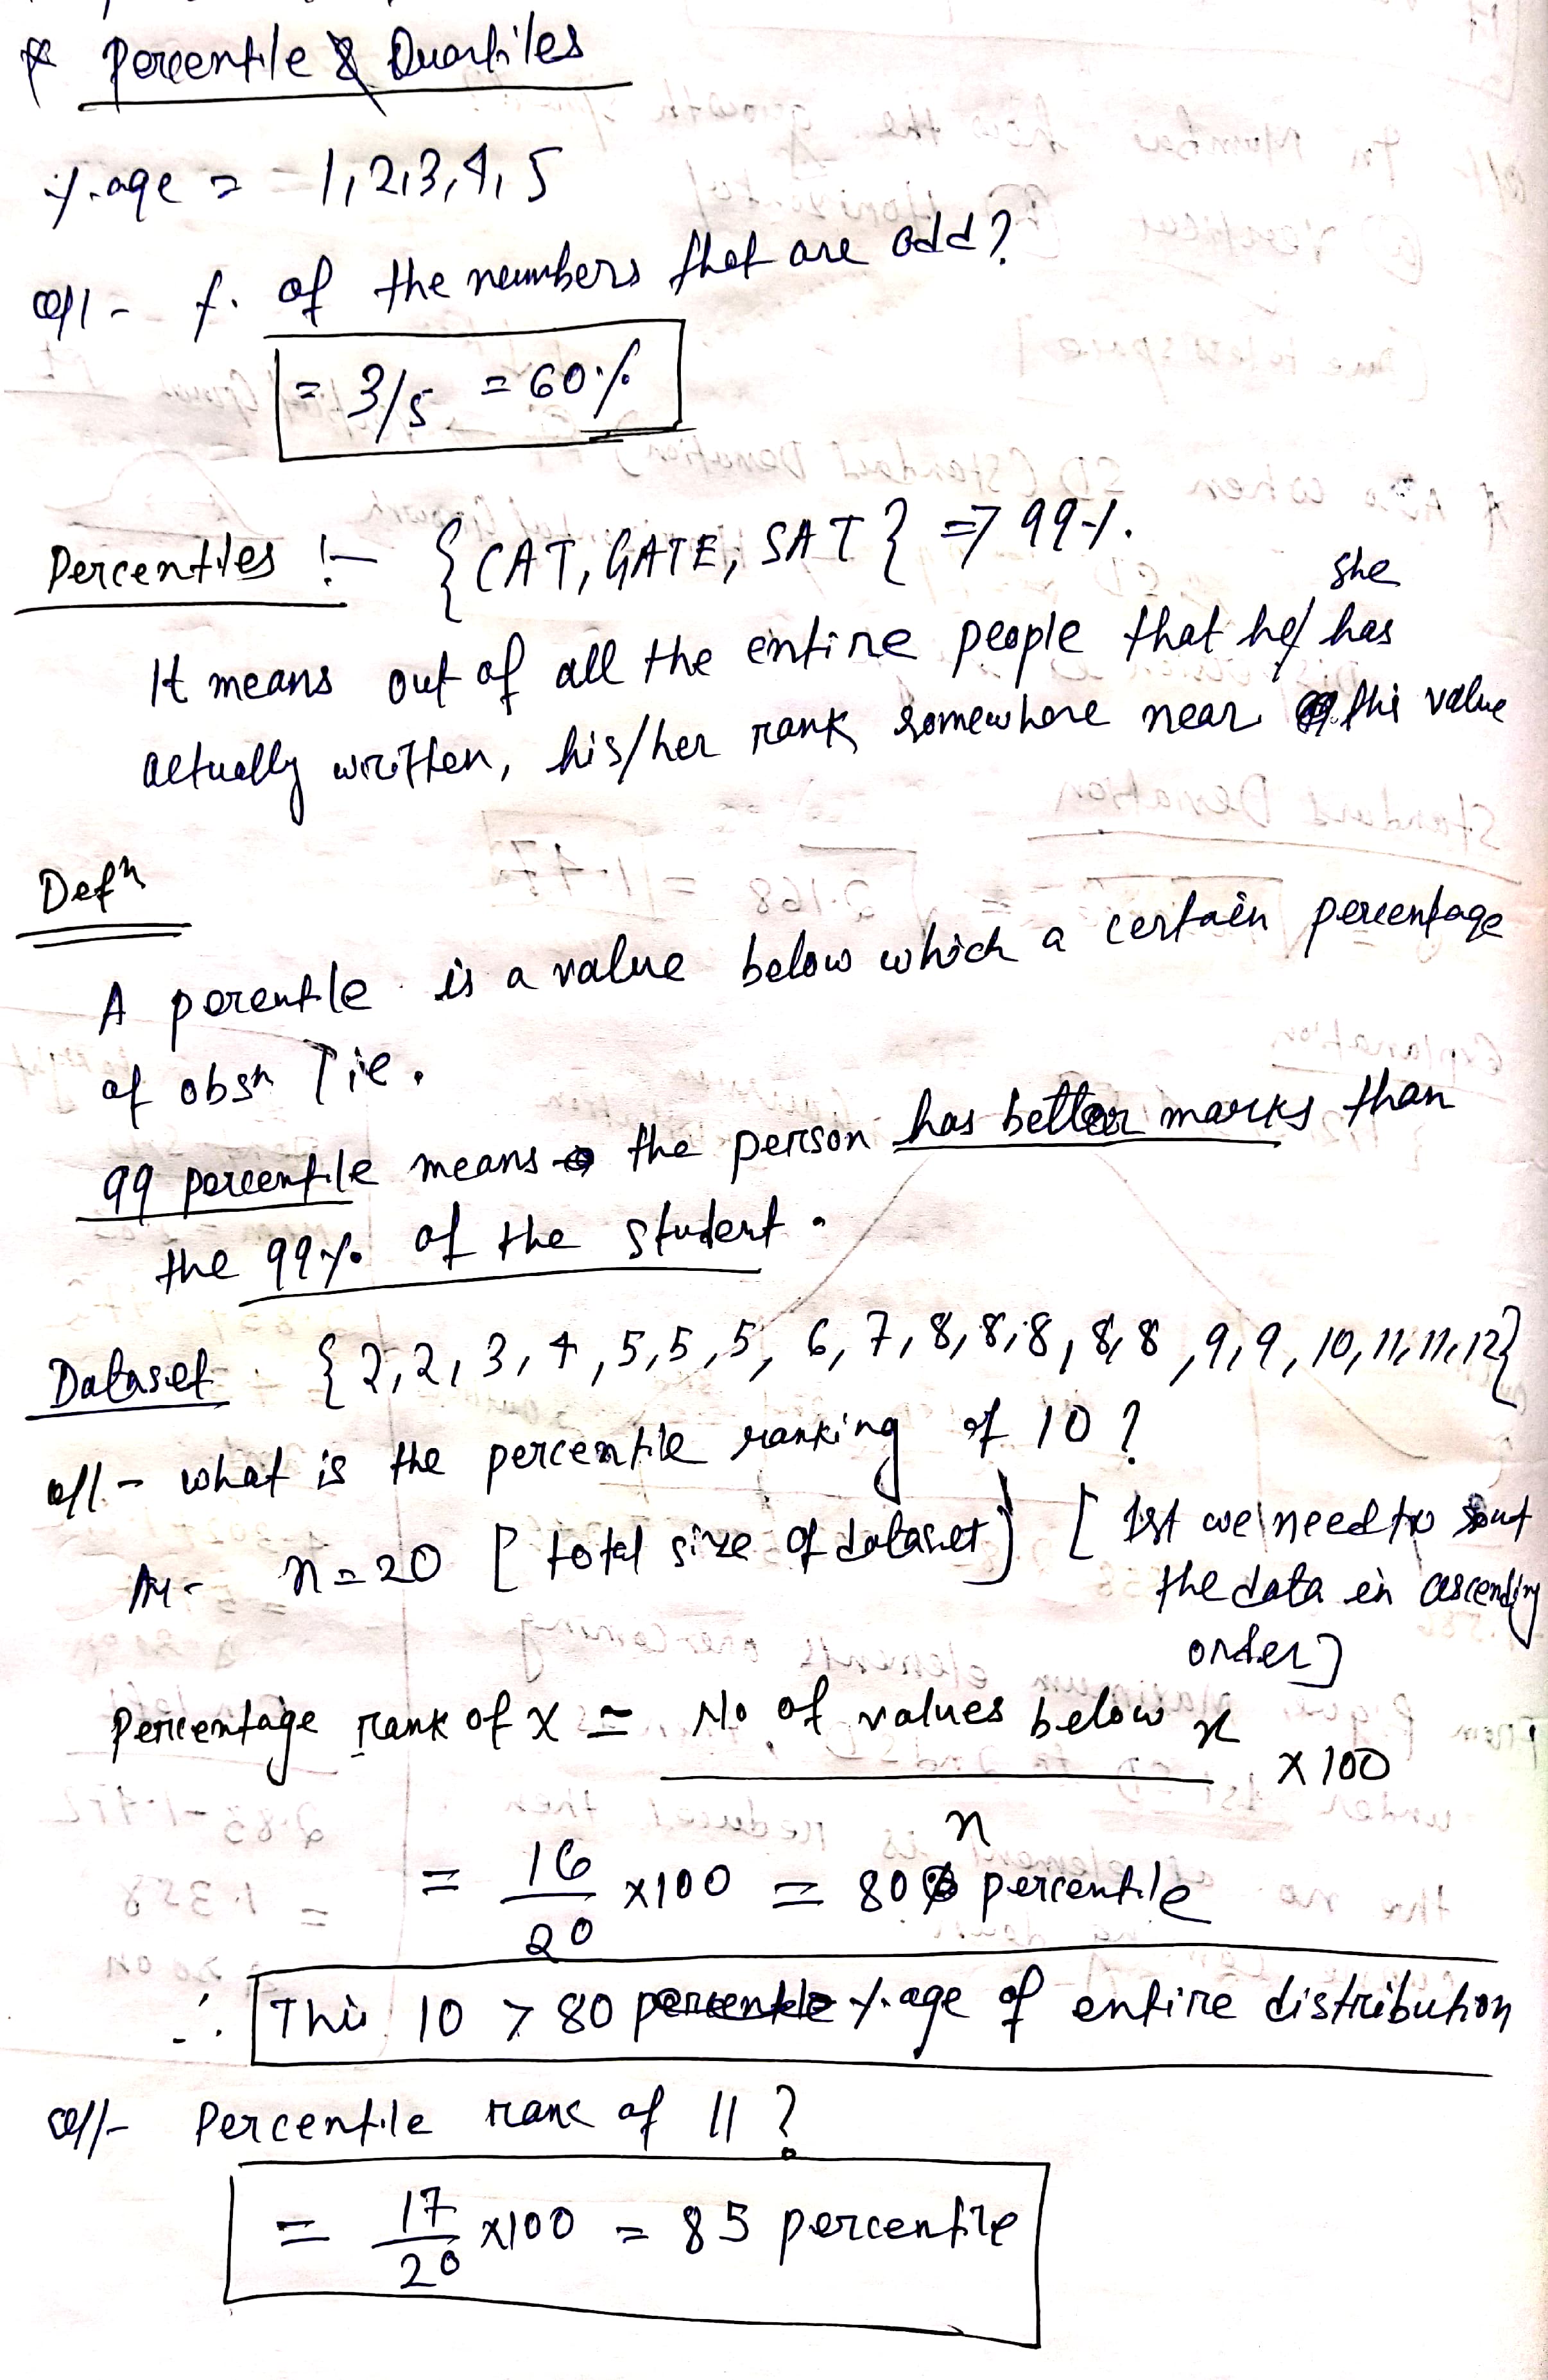 * Percentile & Quartiles
%age = = 1,2,3,4,5
Q/1 - %. of the numbers that are odd?
= 3/5 = 60%
Percentiles :- {CAT, GATE, SAT} => 99%.
she
It means out of all the entire people that he/ has
actually written, his/her rank somewhere near this value
Defn
A percentile is a value below which a certain percentage
of obsn lie.
99 percentile means the person has better marks than
the 99% of the student.
Dataset {2,2,3,4,5,5,5,6,7,8,8,8,8,8,9,9,10,11,11,12}
Q/1. - what is the percentile ranking of 10?
Ans - n = 20 [total size of dataset] [1st we need to sort
the data in ascending
order]
Percentage rank of x = No. of values below x
x 100
n
= 16/20 x100 = 80 percentile
∴ This 10 > 80 percentile %age of entire distribution
Q/1- Percentile rank of 11?
= 17/20 x100 = 85 percentile